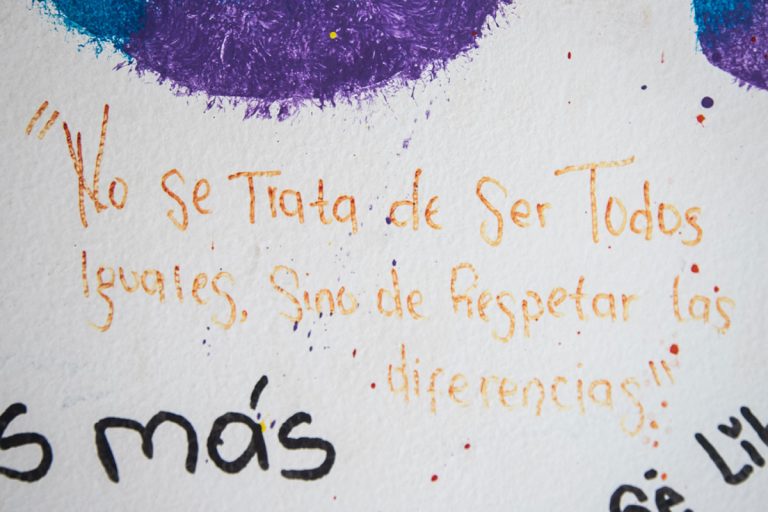 "No Se Trata de Ser Todos
Iguales, Sino de Respetar las
diferencias"
s más